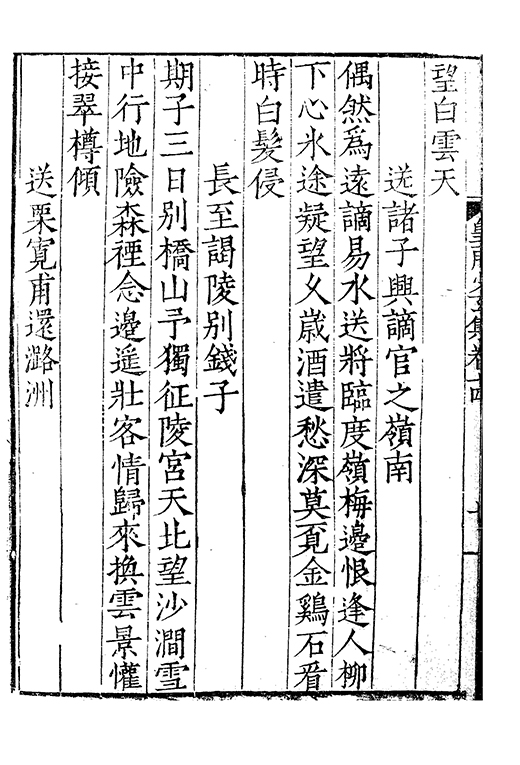 望白雲天
送諸子興謫官之嶺南
偶然爲遠謫易水送將臨度嶺梅邊恨逢人柳
下心氷途疑望久歲酒遣愁深莫覔金鷄石看
時白髮侵
長至謁陵别錢子
期子三日别橋山予獨征陵宮天北望沙澗雪
中行地險森禋念邊遥壯客情歸來換雲景懽
接翠樽傾
送栗寛甫還潞洲